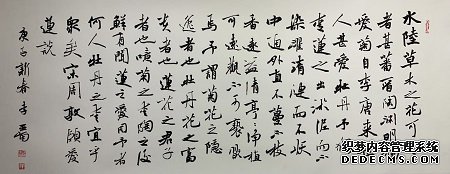 水陸草木之花可
者甚蕃晉陶淵明
愛菊自李唐來
人甚愛牡丹予
愛蓮之出淤泥而不
染濯清漣而不妖
中通外直不蔓不枝
香遠益清亭亭淨植
可遠觀不可褻玩
焉予謂菊花之隱
逸者也牡丹花之富
貴者也蓮花之君子
者也噫菊之愛陶之後
鮮有聞蓮之愛同予者
何人牡丹之愛宜乎
眾矣宋周敦頤愛
蓮說
庚子新春李
织梦内容管理系统
DEDECMS.COM